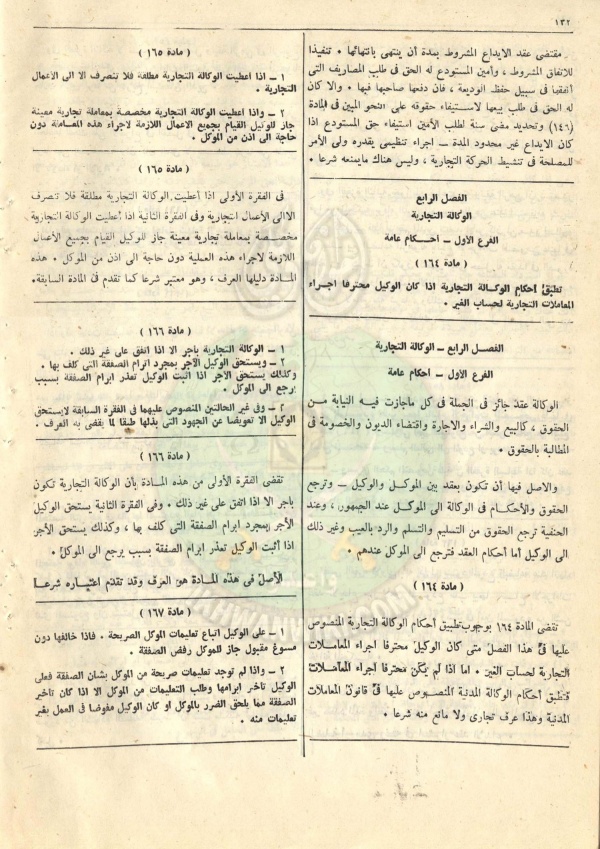 ١٣٢
مقتضى عقد الايداع المشروط بمدة أن ينتهى بانتهائها . تنفيذا
للاتفاق المشروط ، وأمين المستودع له الحق فى طلب المصاريف التى
أنفقها فى سبيل حفظ الوديعة ، فان دفعها صاحبها فيها . والا كان
له الحق فى طلب بيعها لاستيفاء حقوقه على النحو المبين فى المادة
(١٤٦) وتحديد مضى سنة لطلب الأمين استيفاء حق المستودع اذا
كان الايداع غير محدود المدة — اجراء تنظيمى يقدره ولى الأمر
للمصلحة فى تنشيط الحركة التجارية ، وليس هناك مايمنعه شرعا .
الفصل الرابع
الوكالة التجارية
الفرع الأول — أحكام عامة
( مادة ١٦٤ )
تطبق أحكام الوكالة التجارية اذا كان الوكيل محترفا اجراء
المعاملات التجارية لحساب الغير .
الفصل الرابع — الوكالة التجارية
الفرع الأول — أحكام عامة
الوكالة عقد جائز فى الجملة فى كل ماجازت فيه النيابة من
الحقوق ، كالبيع والشراء والاجارة واقتضاء الديون والخصومة فى
المطالبة بالحقوق .
والاصل فيها أن تكون بعقد بين الموكل والوكيل — وترجع
الحقوق والأحكام فى الوكالة الى الموكل عند الجمهور ، وعند
الحنفية ترجع الحقوق من التسليم والتسلم والرد بالعيب وغير ذلك
الى الوكيل أما أحكام العقد فترجع الى الموكل عندهم .
( مادة ١٦٤ )
تقضى المادة ١٦٤ بوجوب تطبيق أحكام الوكالة التجارية المنصوص
عليها فى هذا الفصل متى كان الوكيل محترفا اجراء المعاملات
التجارية لحساب الغير . اما اذا لم يكن محترفا اجراء المعاملات
فتطبق أحكام الوكالة المدنية المنصوص عليها فى قانون المعاملات
المدنية وهذا عرف تجارى ولا مانع منه شرعا .
( مادة ١٦٥ )
١ — اذا اعطيت الوكالة التجارية مطلقة فلا تنصرف الا الى الأعمال
التجارية .
٢ — واذا اعطيت الوكالة التجارية مخصصة بمعاملة تجارية معينة
جاز للوكيل القيام بجميع الاعمال اللازمة لاجراء هذه المعاملة دون
حاجة الى اذن من الموكل .
( مادة ١٦٥ )
فى الفقرة الأولى اذا أعطيت الوكالة التجارية مطلقة فلا تنصرف
الاالى الأعمال التجارية وفى الفقرة الثانية اذا أعطيت الوكالة التجارية
مخصصة بمعاملة تجارية معينة جاز للوكيل القيام بجميع الأعمال
اللازمة لاجراء هذه العملية دون حاجة الى اذن من الموكل . هذه
المادة دليلها العرف ، وهو معتبر شرعا كما تقدم فى المادة السابقة.
( مادة ١٦٦ )
١ — الوكالة التجارية باجر الا اذا اتفق على غير ذلك .
٢ — ويستحق الوكيل الأجر بمجرد ابرام الصفقة التى كلف بها .
وكذلك يستحق الأجر اذا اثبت الوكيل تعذر ابرام الصفقة بسبب
يرجع الى الموكل .
٣ — وفى غير الحالتين المنصوص عليهما فى الفقرة السابقة لايستحق
الوكيل الا تعويضا عن الجهود التى بذلها طبقا لما يقضى به العرف .
( مادة ١٦٦ )
تقضى الفقرة الأولى من هذه المادة بأن الوكالة التجارية تكون
باجر الا اذا اتفق على غير ذلك . وفى الفقرة الثانية يستحق الوكيل
الأجر بمجرد ابرام الصفقة التى كلف بها ، وكذلك يستحق الأجر
اذا أثبت الوكيل تعذر ابرام الصفقة بسبب يرجع الى الموكل .
الأصل فى هذه المادة هو العرف وقد تقدم اعتباره شرعا
( مادة ١٦٧ )
١ — على الوكيل اتباع تعليمات الموكل الصريحة . فاذا خالفها دون
مسوغ مقبول جاز للموكل رفض الصفقة .
٢ — واذا لم توجد تعليمات صريحة من الموكل بشان الصفقة فعلى
الوكيل تاخير ابرامها وطلب التعليمات من الموكل الا اذا كان تاخير
الصفقة مما يلحق الضرر بالموكل او كان الوكيل مفوضا فى العمل بغير
تعليمات منه .